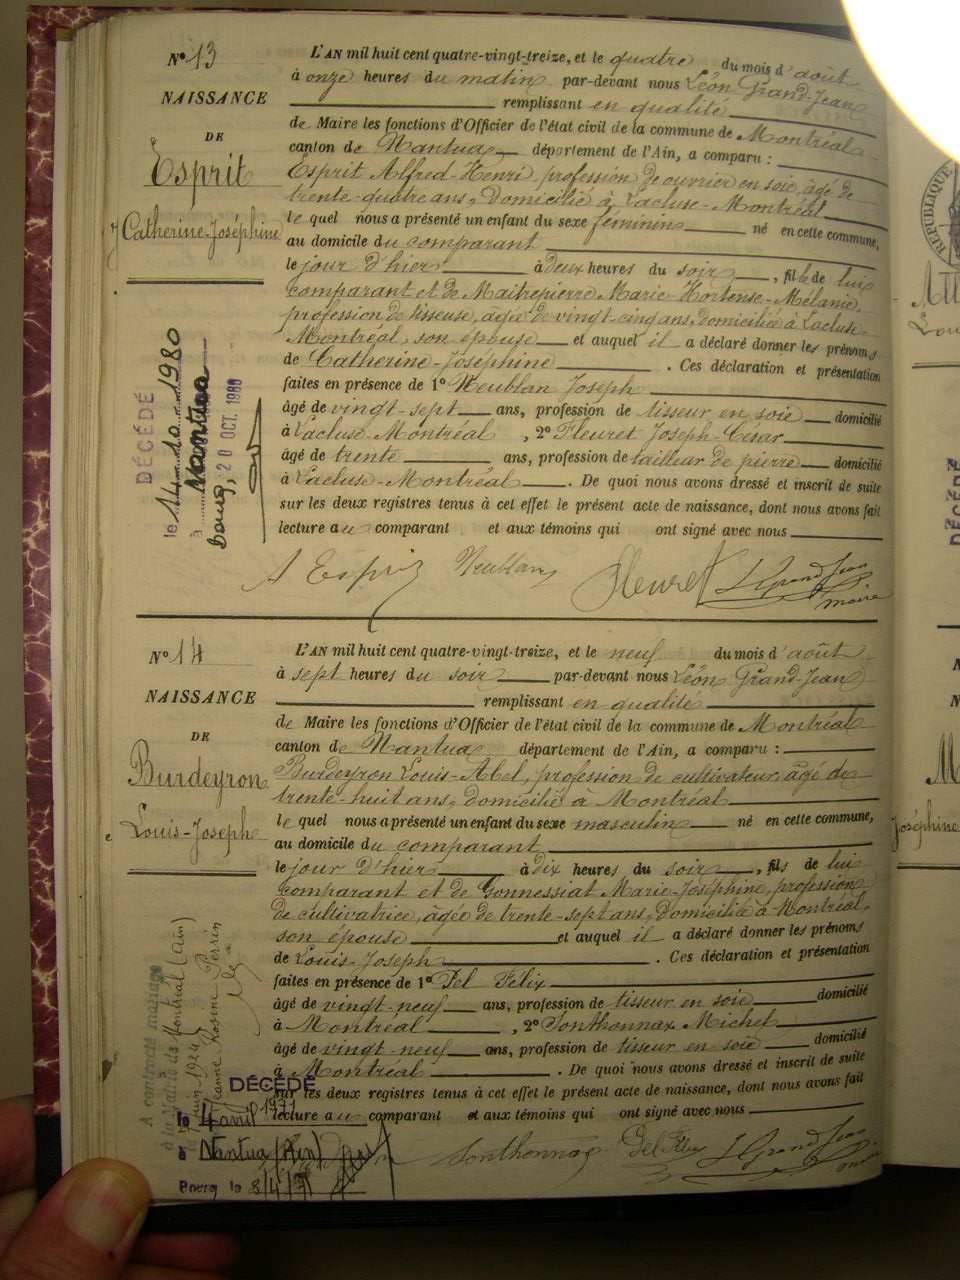 N° 13
NAISSANCE
DE
Esprit
Catherine-Joséphine
DÉCÉDÉ
le 14-10-1980
à Nantua
Bourg, 20 OCT. 1980
L'AN mil huit cent quatre-vingt-treize, et le quatre du mois d'août
à onze heures du matin par-devant nous Léon Grand-Jean
remplissant en qualité
de Maire les fonctions d'Officier de l'état civil de la commune de Montréal
canton de Nantua département de l'Ain, a comparu :
Esprit Alfred-Henri, profession de ouvrier en soie, âgé de
trente-quatre ans, domicilié à Lacluse-Montréal
le quel nous a présenté un enfant du sexe féminin né en cette commune,
au domicile du comparant
le jour d'hier à deux heures du soir, fille de lui
comparant et de Maitrepierre Marie-Hortense-Mélanie,
profession de tisseuse, agée de vingt-cinq ans, domiciliée à Lacluse
Montréal, son épouse et auquel il a déclaré donner les prénoms
de Catherine-Joséphine. Ces déclaration et présentation
faites en présence de 1° Neublan Joseph
âgé de vingt-sept ans, profession de tisseur en soie domicilié
à Lacluse-Montréal, 2° Fleuret Joseph-César
âgé de trente ans, profession de tailleur de pierre domicilié
à Lacluse-Montréal. De quoi nous avons dressé et inscrit de suite
sur les deux registres tenus à cet effet le présent acte de naissance, dont nous avons fait
lecture au comparant et aux témoins qui ont signé avec nous
A Esprit Neublan Fleuret L Grand Jean
maire
N° 14
NAISSANCE
DE
Burdeyron
Louis-Joseph
A contracté mariage
à la Mairie de Montréal (Ain)
juin 1924
Jeanne Rosine Perrin
DÉCÉDÉ
le 4 avril 1971
à Nantua (Ain)
Bourg le 8/4/71
L'AN mil huit cent quatre-vingt-treize, et le neuf du mois d'août
à sept heures du soir par-devant nous Léon Grand-Jean
remplissant en qualité
de Maire les fonctions d'Officier de l'état civil de la commune de Montréal
canton de Nantua département de l'Ain, a comparu :
Burdeyron Louis-Abel, profession de cultivateur, âgé de
trente-huit ans, domicilié à Montréal
le quel nous a présenté un enfant du sexe masculin né en cette commune,
au domicile du comparant
le jour d'hier à dix heures du soir, fils de lui
comparant et de Gonnessiat Marie-Joséphine, profession
de cultivatrice, âgée de trente-sept ans, domiciliée à Montréal,
son épouse et auquel il a déclaré donner les prénoms
de Louis-Joseph. Ces déclaration et présentation
faites en présence de 1° Del Félix
âgé de vingt-neuf ans, profession de tisseur en soie domicilié
à Montréal, 2° Sonthonnax Michel
âgé de vingt-neuf ans, profession de tisseur en soie domicilié
à Montréal. De quoi nous avons dressé et inscrit de suite
sur les deux registres tenus à cet effet le présent acte de naissance, dont nous avons fait
lecture au comparant et aux témoins qui ont signé avec nous
Sonthonnax Del Félix L Grand Jean
maire
RÉPUBLIQUE
Joséphine